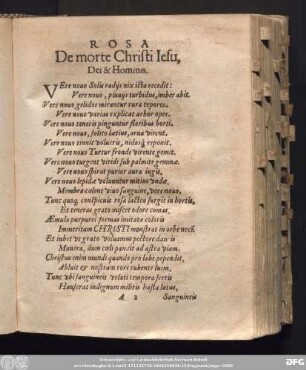 ROSA
De morte Christi Iesu,
Dei & Hominis.
VEre nouo Solis radijs nix icta recedit:
Vere nouo, pluuijs turbidus, imber abit.
Vere nouo gelidos mirantur rura tepores,
Vere nouo varias explicat arbor opes.
Vere nouo teneris pinguntur floribus horti,
Vere nouo, solito lætius, arua virent.
Vere nouo tinnit volucris, nidosq; reponit,
Vere nouo Turtur fronde virente gemit.
Vere nouo turgent viridi sub palmite gemmæ,
Vere nouo spirat purior aura iugis,
Vere nouo lepidæ voluuntur mitius vndæ,
Membra calent viuo sanguine, vere nouo.
Tunc quoq; conspicuis rosa lactea surgit in hortis,
Et teneras grato inficet odore comas,
Æmula purpurei formas imitata coloris
Immeritam CHRISTI monstrat in orbe necem.
Et iubet vt grato voluamus pectore dauis
Munera, dum cœli pandit ad astra viam.
Christus enim mundi quando pro labe pependit,
Abluit ex nostram rore rubente luem,
Tunc vbi sanguineis velati tempora sertis
Hauserat indignum militis hasta latus,
A 2 Sanguineis
Universitäts- und Landesbibliothek Sachsen-Anhalt
DFG